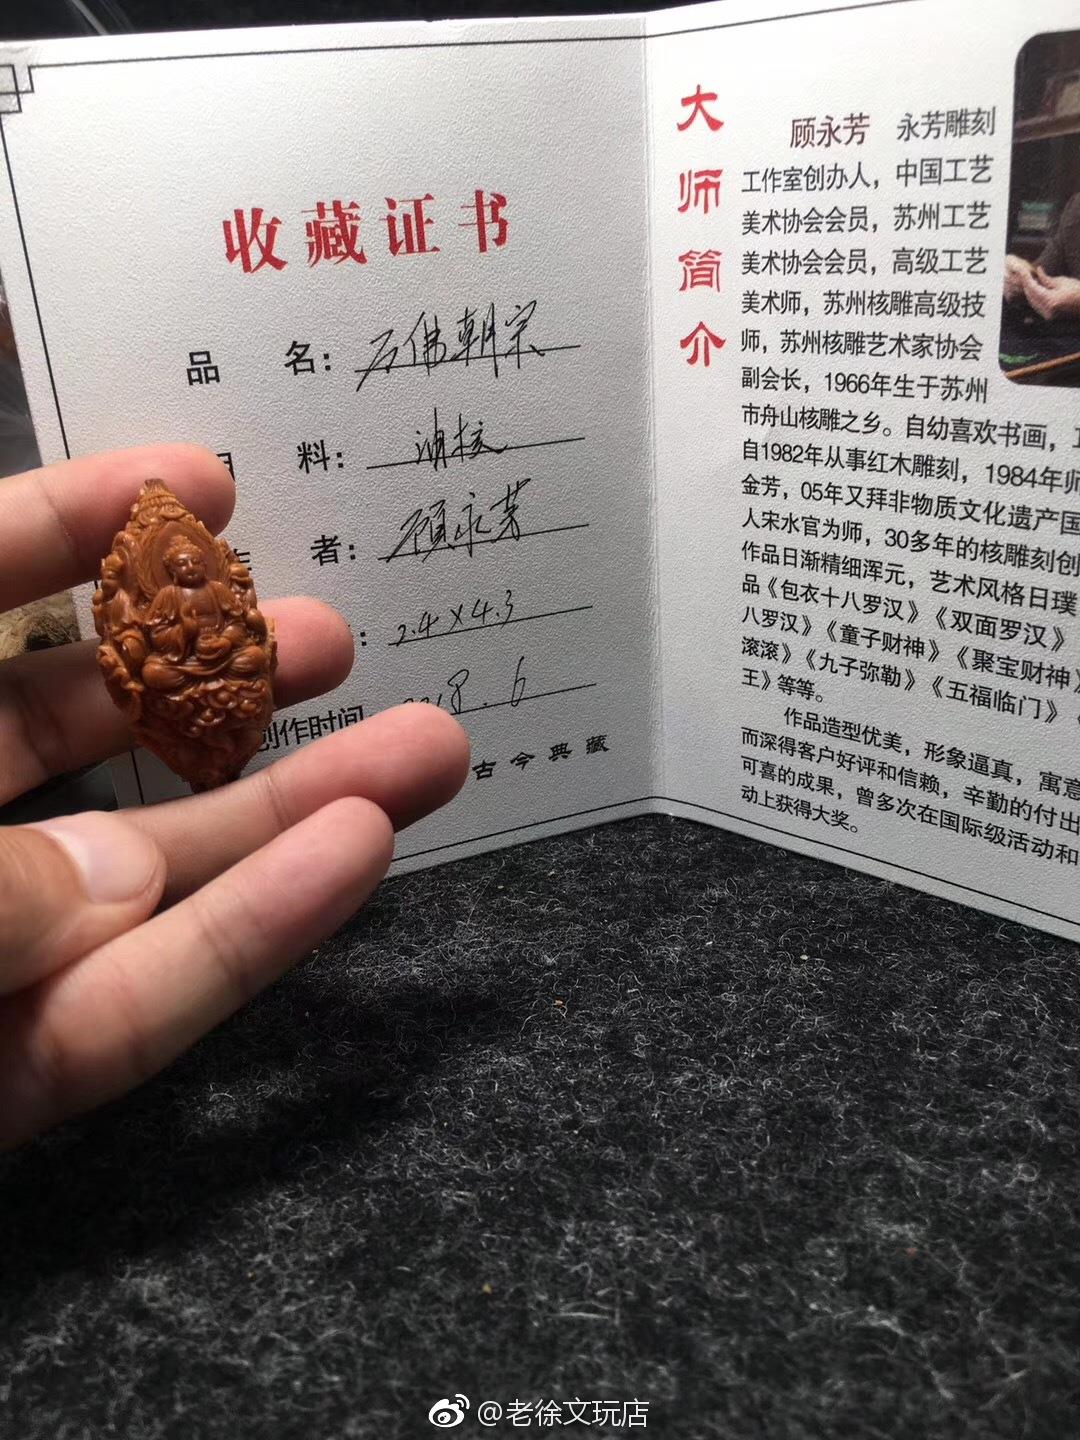 收藏证书
品 名：万佛朝宗
料：油核
者：顾永芳
：2.4×4.3
创作时间 2018.6
古今典藏
大师简介
顾永芳 永芳雕刻
工作室创办人，中国工艺
美术协会会员，苏州工艺
美术协会会员，高级工艺
美术师，苏州核雕高级技
师，苏州核雕艺术家协会
副会长，1966年生于苏州
市舟山核雕之乡。自幼喜欢书画，
自1982年从事红木雕刻，1984年师
金芳，05年又拜非物质文化遗产国
人宋水官为师，30多年的核雕刻创
作品日渐精细浑元，艺术风格日璞
品《包衣十八罗汉》《双面罗汉》
八罗汉》《童子财神》《聚宝财神》
滚滚》《九子弥勒》《五福临门》《
王》等等。
作品造型优美，形象逼真，寓意
而深得客户好评和信赖，辛勤的付出
可喜的成果，曾多次在国际级活动和
动上获得大奖。
@老徐文玩店